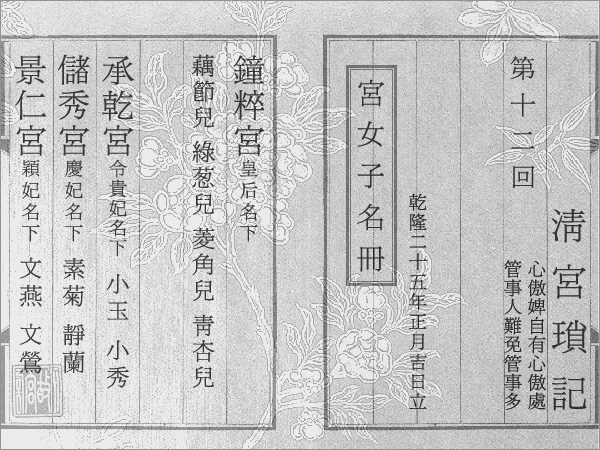 清宮瑣記
第十二回
心傲婢自有心傲處
管事人難免管事多
乾隆二十五年正月吉日立
宮女子名冊
鐘粹宮皇后名下
藕節兒 綠葱兒 菱角兒 青杏兒
承乾宮令貴妃名下 小玉 小秀
儲秀宮慶妃名下 素菊 靜蘭
景仁宮穎妃名下 文燕 文鶯